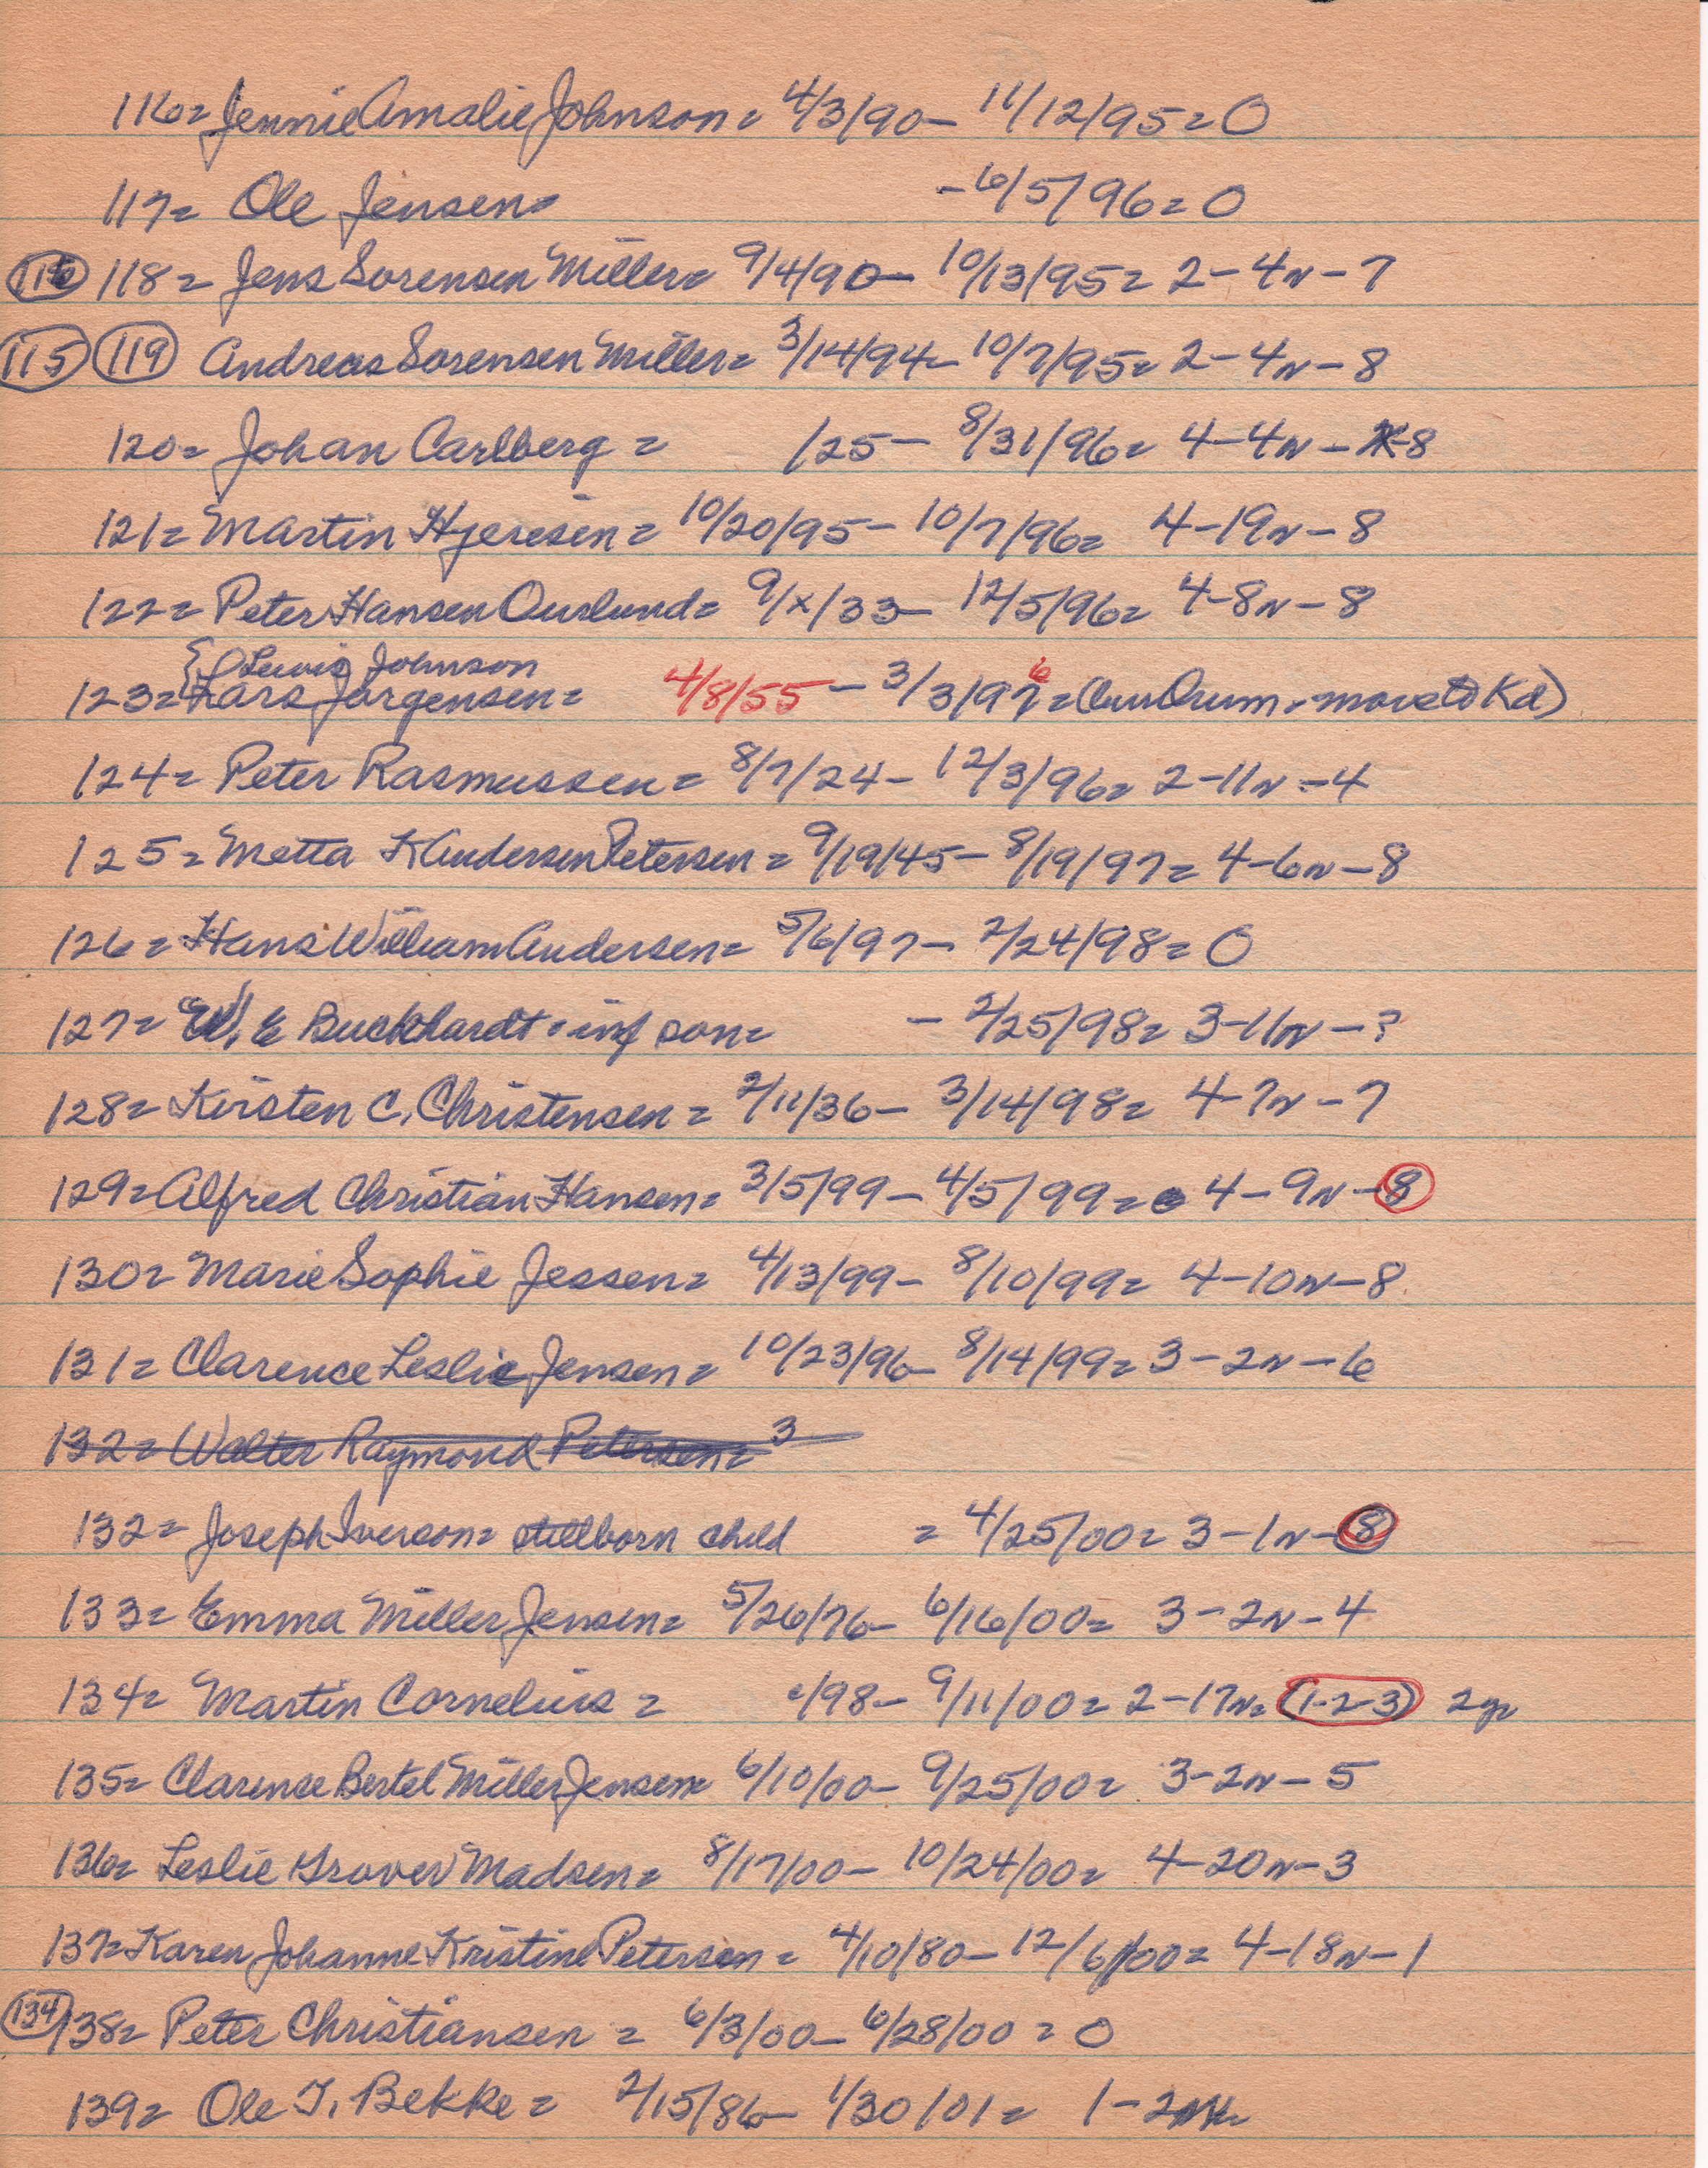 116= Jennie Amalie Johnson = 4/3/90 - 11/12/95 = 0
117= Ole Jensen= - 6/5/96 = 0
118= Jens Sorensen Miller= 9/4/90 - 10/13/95 = 2-4N-7
115 119 Andreas Sorensen Miller= 3/14/94 - 10/7/95= 2-4N-8
120= Johan Carlberg = /25 - 8/31/96= 4-4N-8
121= Martin Hjeresen = 10/20/95 - 10/7/96= 4-19N-8
122= Peter Hansen Ourlund= 9/x/33 - 12/5/96= 4-8N-8
{Lewis Johnson
123= Lars Jorgensen= 4/8/55 - 3/3/97 6 = ( move to Kd)
124= Peter Rasmussen = 8/7/24 - 12/3/96= 2-11N-4
125= Metta K Andersen Petersen = 9/19/45 - 8/19/97= 4-6N-8
126= Hans William Andersen= 5/6/97 - 2/24/98= 0
127= E Buckhardt = inf son= - 2/25/98= 3-11N-?
128= Kirsten C. Christensen = 2/11/36 - 3/14/98= 4-7N-7
129= Alfred Christian Hansen= 3/5/99 - 4/5/99= 4-9N-8
130= Marie Sophie Jessen= 4/13/99 - 8/10/99= 4-10N-8
131= Clarence Leslie Jensen= 10/23/96 - 8/14/99= 3-2N-6
132= Walter Raymond Petersen= 3
132= Joseph Iverson= stillborn child = 4/25/00= 3-1N-8
133= Emma Miller Jensen= 5/26/76 - 6/16/00= 3-2N-4
134= Martin Cornelius = /98 - 9/11/00= 2-17N= (1-2-3) 2yr
135= Clarence Bertel Miller Jensen= 6/10/00 - 9/25/00= 3-2N-5
136= Leslie Grover Madsen= 8/17/00 - 10/24/00= 4-20N-3
137= Karen Johanne Kristine Peterson = 4/10/80 - 12/6/00= 4-18N-1
134 138= Peter Christiansen = 6/3/00 - 6/28/00 = 0
139= Ole T. Bekke = 2/15/86 - 1/30/01= 1-2